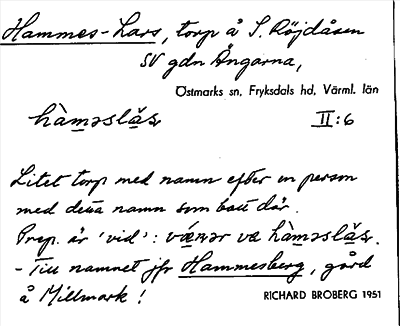 Hammes-Lars, torp å S. Röjdåsen
SV gdn Ängarna,
Östmarks sn, Fryksdals hd, Värml. län
hàməslàs II:6
Litet torp med namn efter en person
med detta namn som bott där.
Prep. är 'vid': væ hàməslàs.
- Till namnet jfr Hammesberg, gård
å Millmark!
RICHARD BROBERG 1951